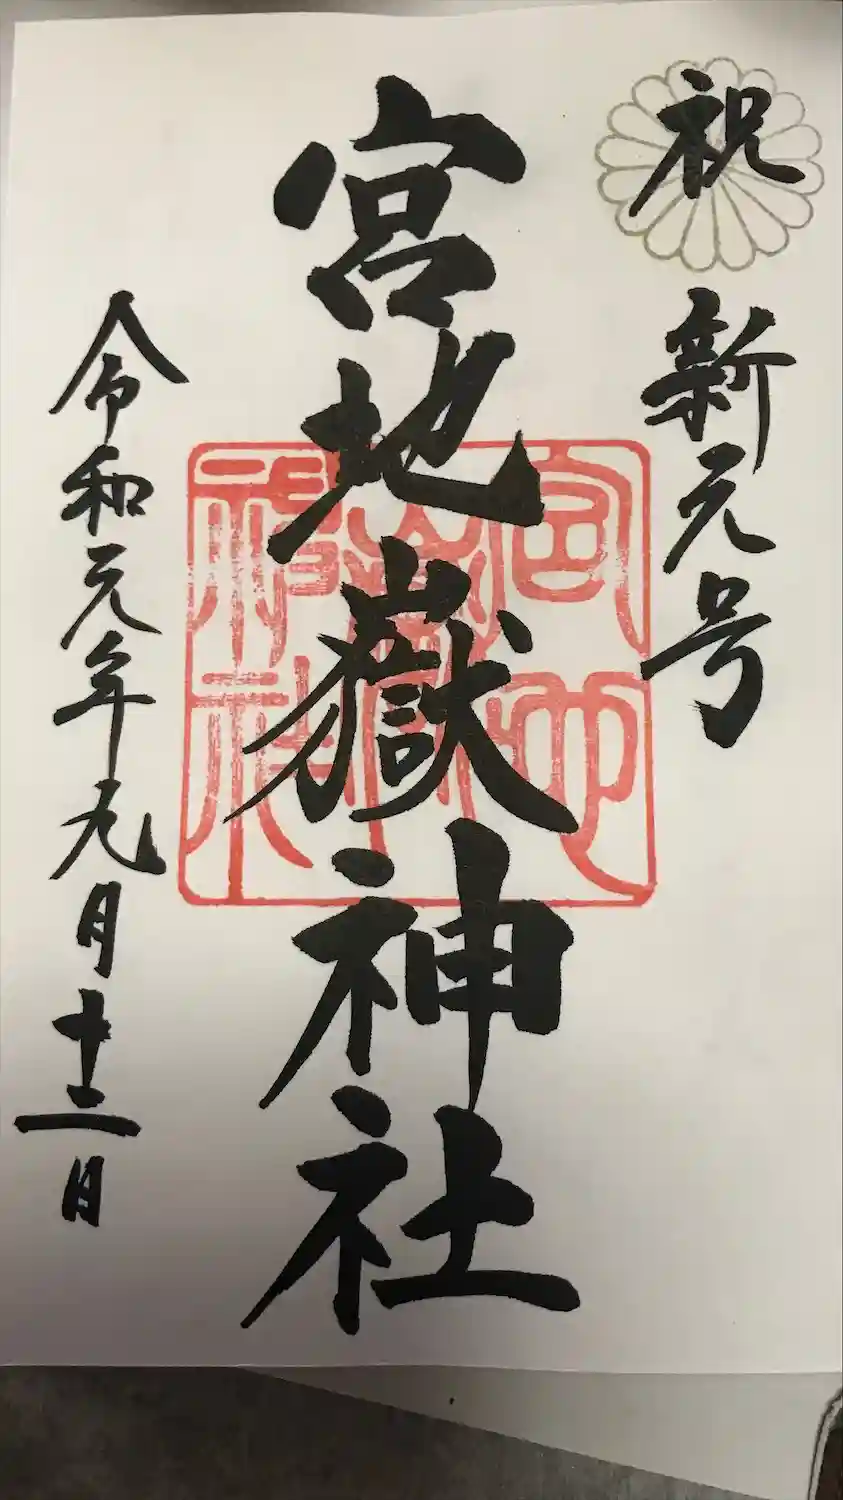 祝
新元号
宮地嶽神社
宮地嶽神社
令和元年九月十二日